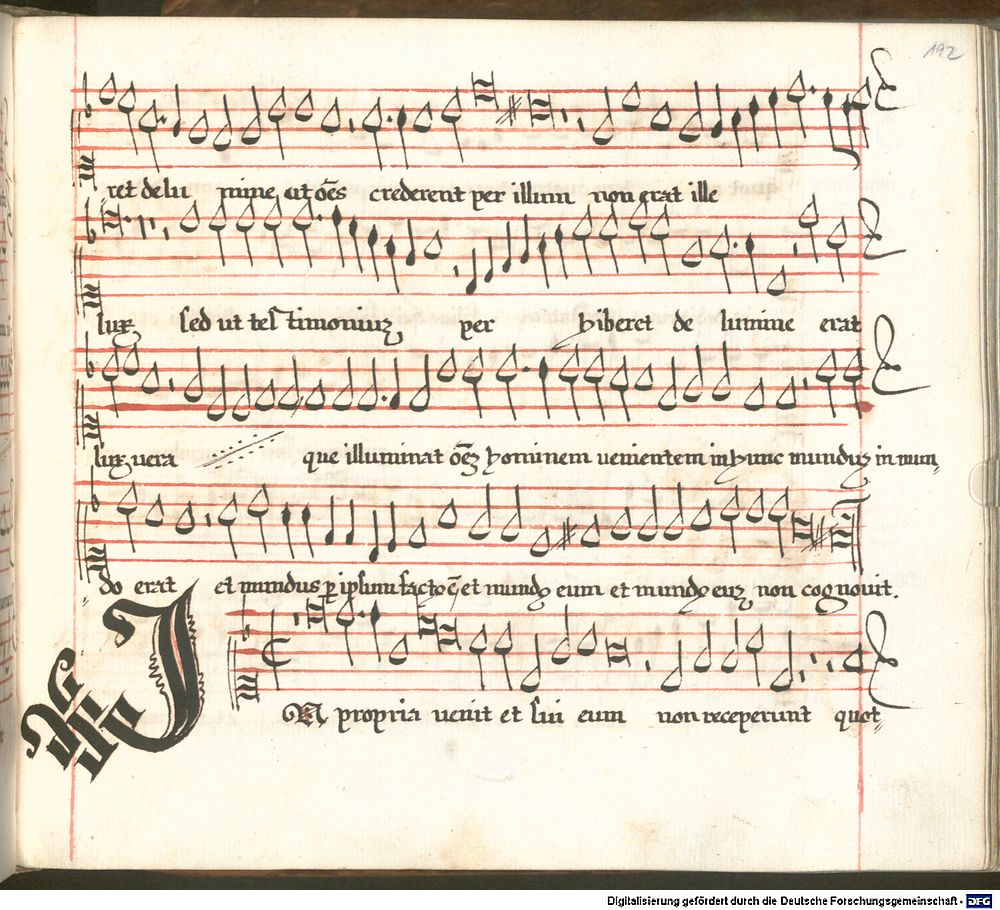 192
ret de lu mine ut oēs crederent per illum non erat ille
lux sed ut testimoniuz per hiberet de lumine erat
lux vera que illuminat oēz hominem venientem in hunc mundus in mun„
„do erat et mundus p ipsum fact ē et mundo eum et mundo euz non cognovit.
IN propria venit et sui eum non receperunt quot„
Digitalisierung gefördert durch die Deutsche Forschungsgemeinschaft - DFG